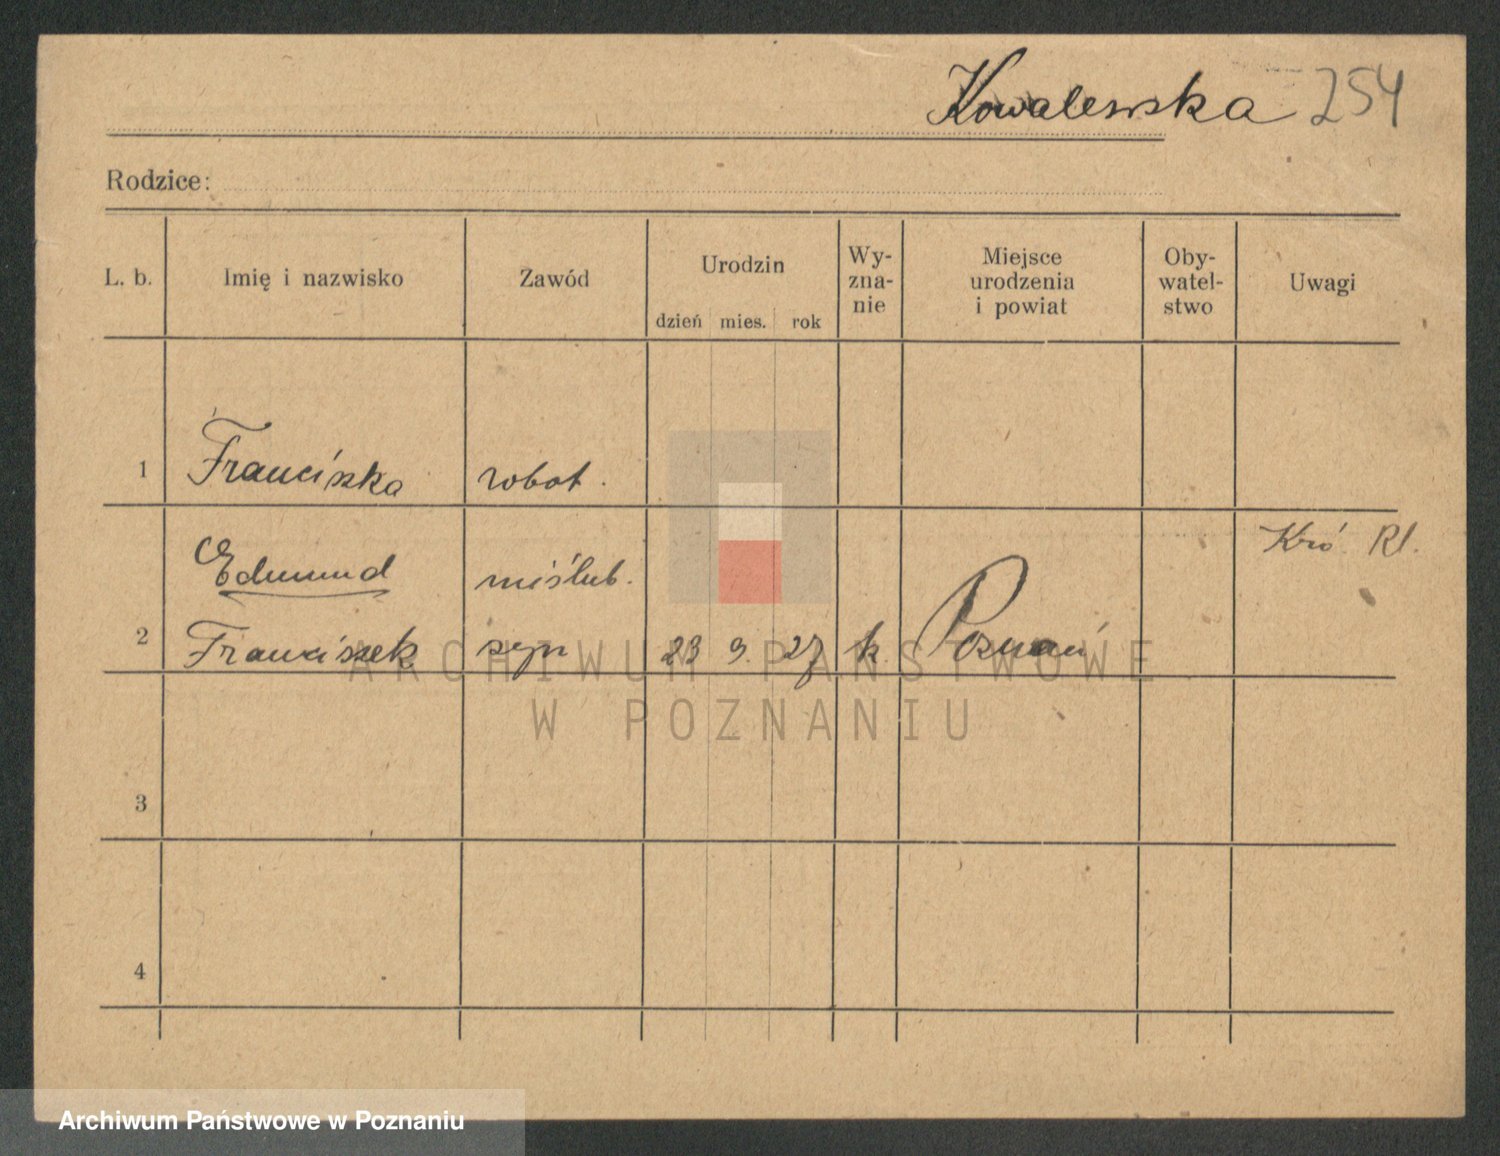 Kowalewska 254
Rodzice:
L. b. Imię i nazwisko Zawód Urodzin dzień mies. rok Wy-zna-nie Miejsce urodzenia i powiat Oby-watel-stwo Uwagi
1 Franciszka robot.
Edmund nieślub. Kró. Rl.
2 Franciszek syn 23 9. 27 k. Poznań
3
4
ARCHIWUM PAŃSTWOWE
W POZNANIU
Archiwum Państwowe w Poznaniu